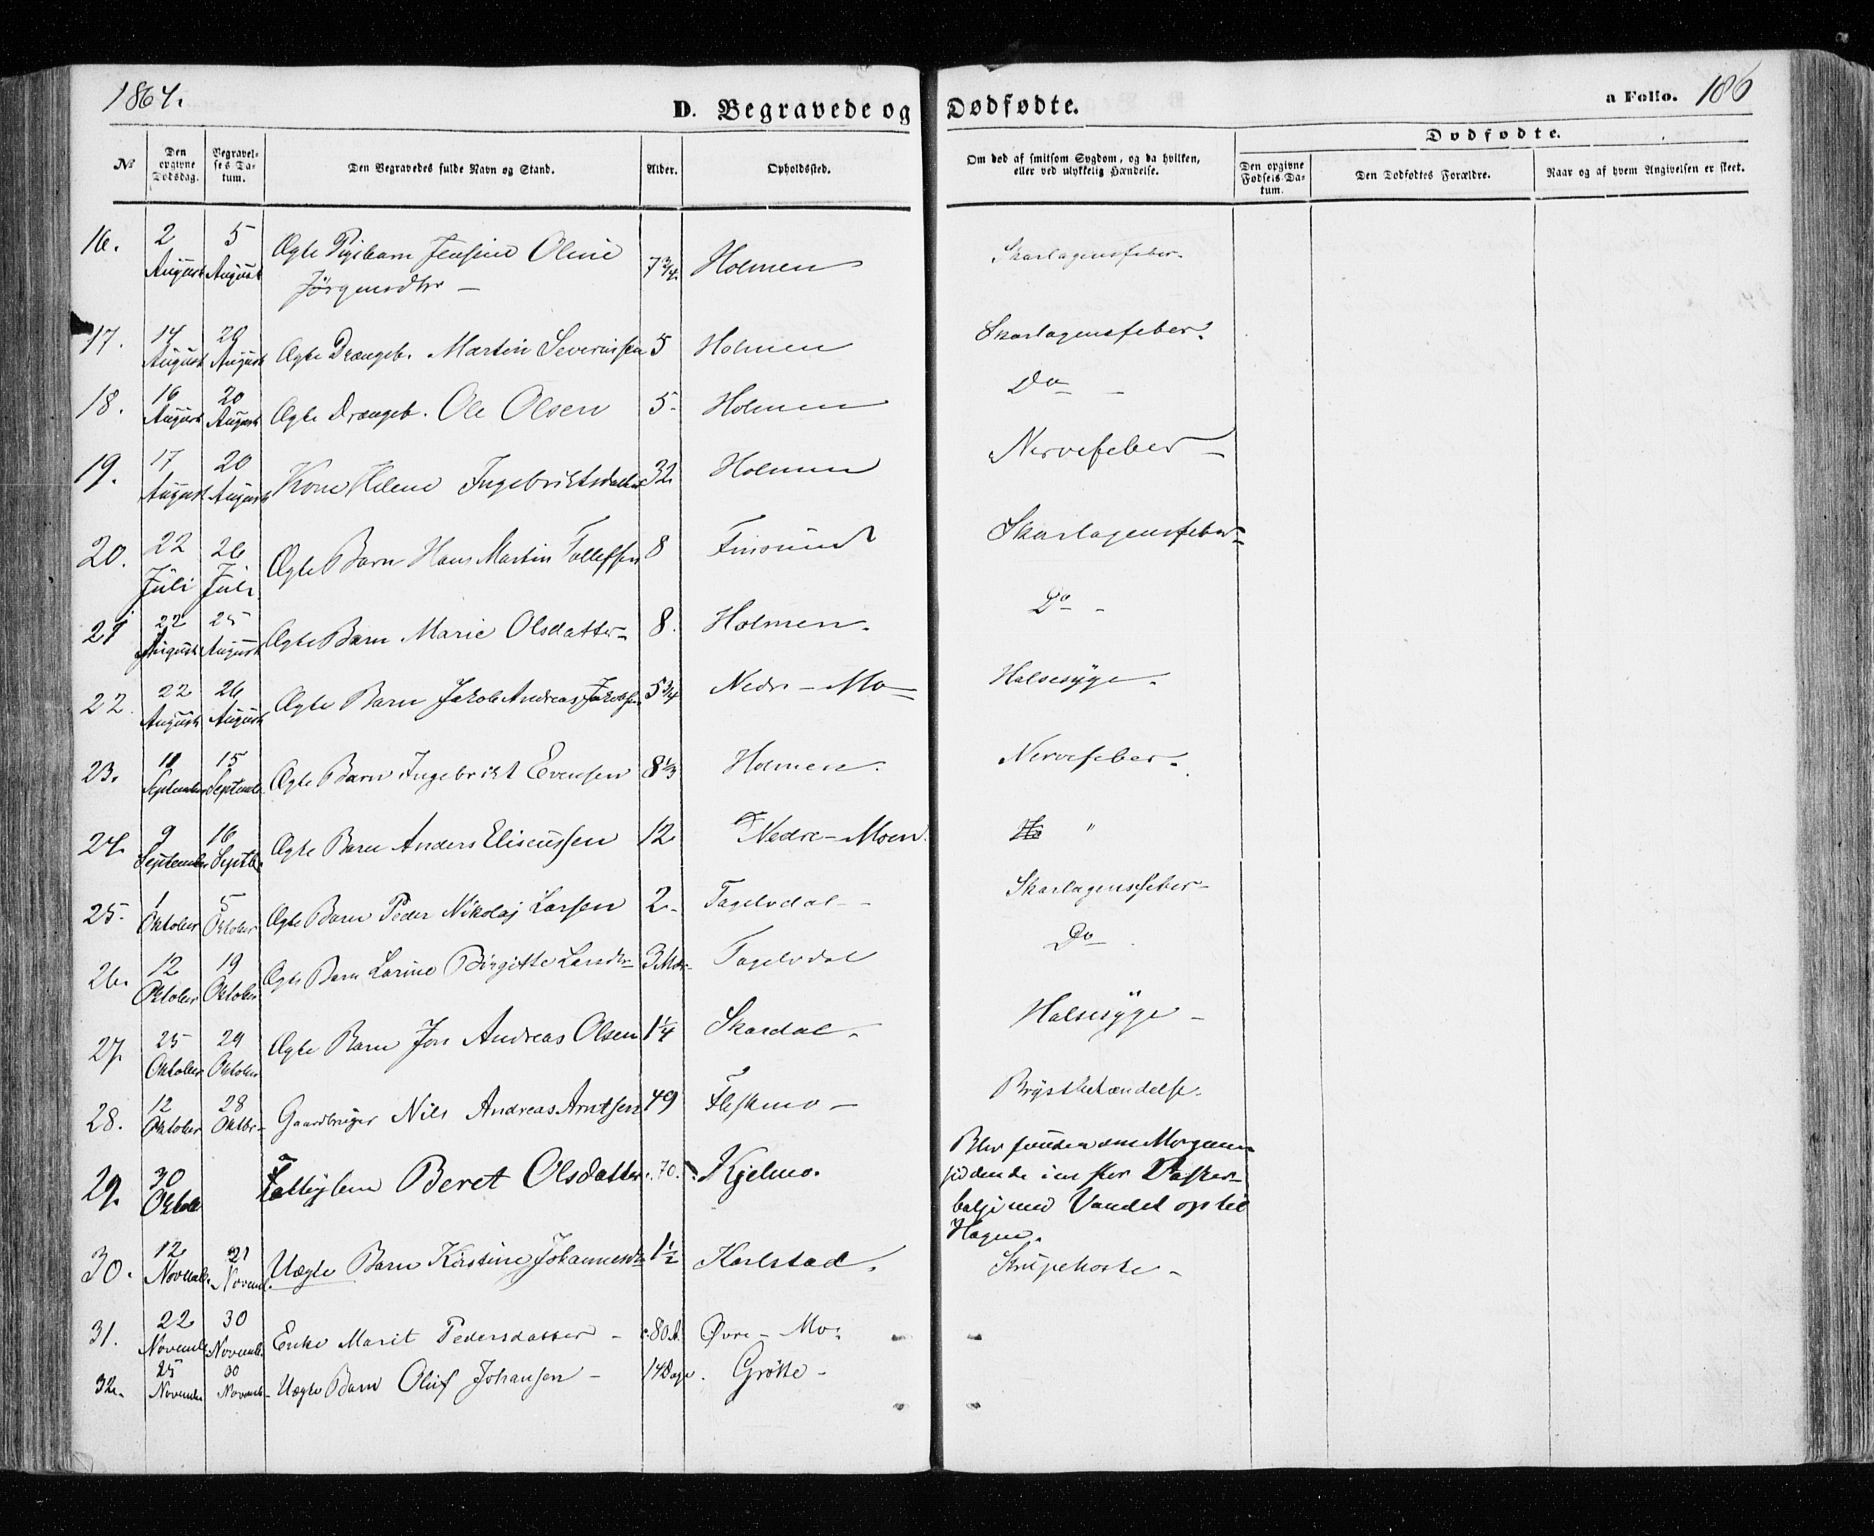 1864.
D. Begravede og Dødfødte.
a Folio. 186
No
Den opgivne Dödsdag.
Begravelses Datum.
Den Begravedes fulde Navn og Stand.
Alder.
Opholdssted.
Om død af smitsom Sygdom, og da hvilken, eller ved ulykkelig Hændelse.
Dødfødte.
Den opgivne Fødsels Datum.
Den Dödfödtes Forældre.
Naar og af hvem Angivelsen er skeet.
16. 2 August 5 August Ægte Pigebarn Jensine Oline Jörgensdtr — 7 3/4 Holmen Skarlagensfeber.
17. 14 August 20 August Ægte Drængeb. Martin Severinsen 5 Holmen Skarlagensfeber.
18. 16 August 20 August Ægte Drængeb. Ole Olsen 5 Holmen Do —
19. 17 August 20 August Kone Helene Ingebriktsdatter 32 Holmen Nervefeber —
20. 22 Juli 26 Juli Ægte Barn Hans Martin Tollefsen 8 Finsund Skarlagensfeber
21 22 August 25 August Ægte Barn Marie Olsdatter 8. Holmen. Do -
22. 22 August 26 August Ægte Barn Jakob Andreas Jakobsen 5 3/4 Nedre - Mo Halsesyge.
23. 11 September 15 Septemb. Ægte Barn Ingebrikt Evensen 8 1/3 Holmen. Nervefeber.
24. 9 September 16 Septb. Ægte Barn Anders Eliseussen 12 Nedre - Moen. "
25. 1 Oktober 5 Oktober Ægte Barn Peder Nikolaj Larsen 2 - Tagelvdal - Skarlagensfeber
26. 12 Oktober 19 Oktober Ægte Barn Larine Birgitte Larsdtr 3 Mdr Tagelvdal Do
27. 25 Oktober 29 Oktober Ægte Barn Jon Andreas Olsen 1 1/4 Skardal. Halsesyge -
28. 12 Oktober 28 Oktbr - Gaardbruger Nils Andreas Arntsen 49 Fleskmo - Brystbetændelse.
29. 30 Oktob Fattiglem Beret Olsdatter 70. Kjelmo. Blev funden om Morgenen
siddende i en stor Vasker-
balje med Vandet op til
Hagen.
30. 12 Novemb. 21 Novemb. Uægte Barn Kirstine Johannesdtr 1 1/2 Karlstad. Strupehoste -
31. 22 Novemb. 30 Novemb. Enke Marit Pedersdatter - 80 A. Øvre - Mo.
32. 25 November 30 Novemb - Uægte Barn Oluf Johansen - 14 Dage. Grötte -